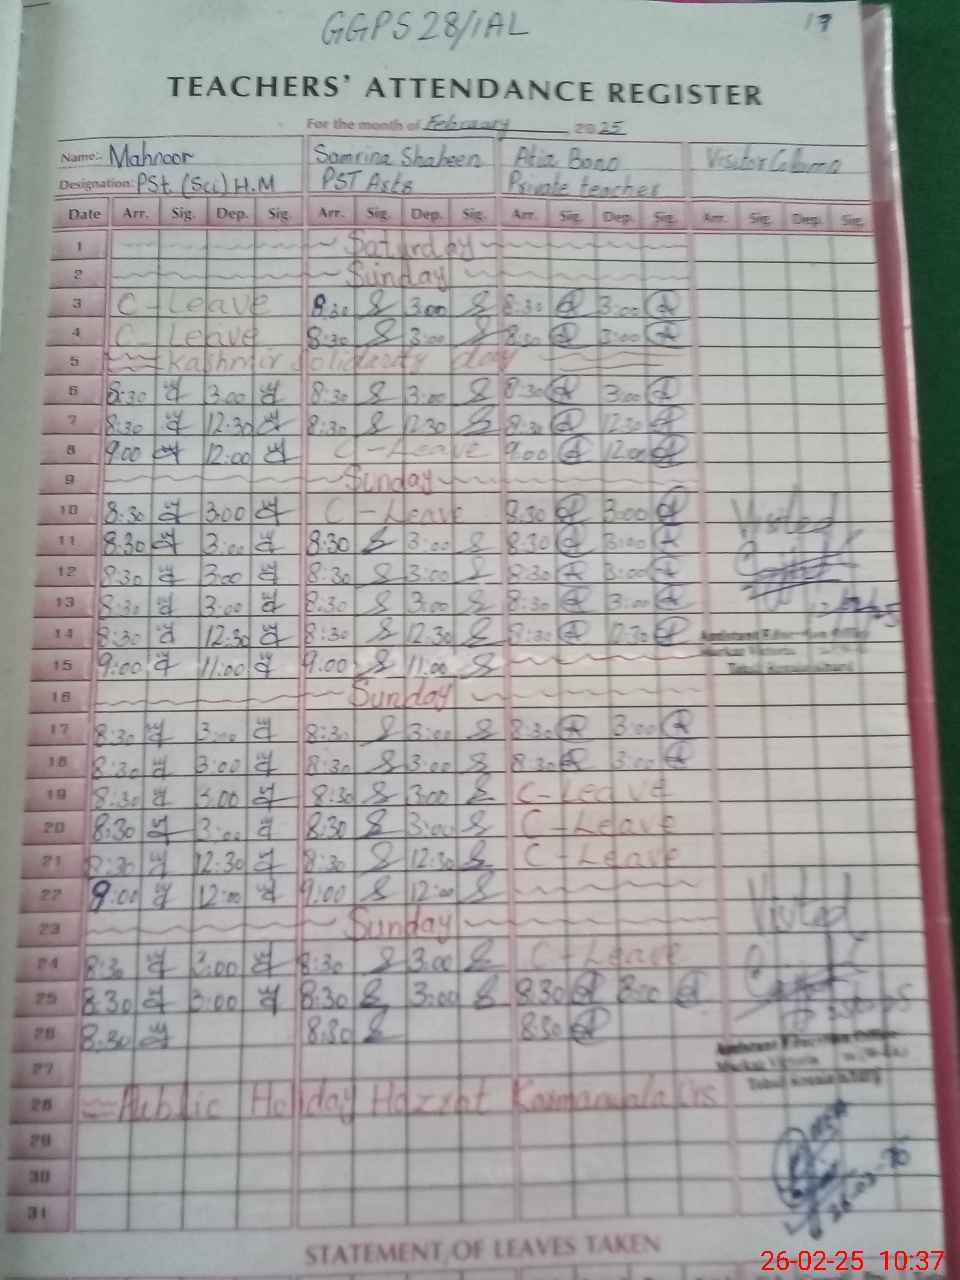 GGPS 28/1AL
17
TEACHERS' ATTENDANCE REGISTER
For the month of February 2025
Name:- Mahnoor Samrina Shaheen Atia Bano Visitor Column
Designation: PSt. (Sci) H.M PST Arts Private teacher
Date Arr. Sig. Dep. Sig. Arr. Sig. Dep. Sig. Arr. Sig. Dep. Sig. Arr. Sig. Dep. Sig.
1 Saturday
2 Sunday
3 C-Leave 8:30 3:00 8:30 3:00
4 C-Leave 8:30 3:00 8:30 3:00
5 Kashmir Solidarity day
6 8:30 3:00 8:30 3:00 8:30 3:00
7 8:30 12:30 8:30 12:30 8:30 12:30
8 9:00 12:00 C-Leave 9:00 12:00
9 Sunday
10 8:30 3:00 C-Leave 8:30 3:00 Visited
11 8:30 3:00 8:30 3:00 8:30 3:00
12 8:30 3:00 8:30 3:00 8:30 3:00
13 8:30 3:00 8:30 3:00 8:30 3:00
14 8:30 12:30 8:30 12:30 8:30 12:30 Assistant Education Officer
15 9:00 11:00 9:00 11:00
16 Sunday
17 8:30 3:00 8:30 3:00 8:30 3:00
18 8:30 3:00 8:30 3:00 8:30 3:00
19 8:30 3:00 8:30 3:00 C-Leave
20 8:30 3:00 8:30 3:00 C-Leave
21 8:30 12:30 8:30 12:30 C-Leave
22 9:00 12:00 9:00 12:00
23 Sunday Visited
24 8:30 3:00 8:30 3:00 C-Leave
25 8:30 3:00 8:30 3:00 8:30 3:00
26 8:30 8:30 8:30 Assistant Education Officer
27
28 Public Holiday Hazrat Karmanwala
29
30
31
STATEMENT OF LEAVES TAKEN
26-02-25 10:37